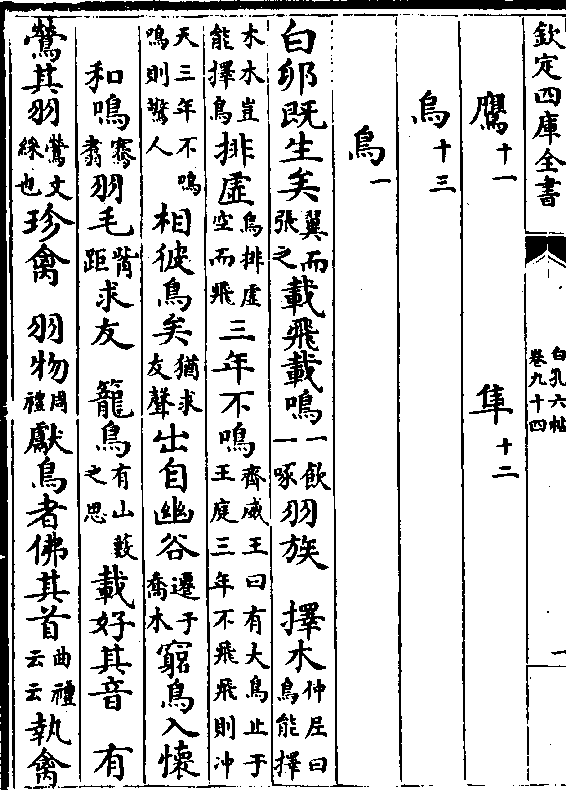 欽定四庫全書
白孔六帖
卷九十四
一
鷹十一　隼十二
烏十三
鳥一
白卵既生矣翼而張之載飛載鳴一飲一啄羽族　擇木仲尼曰鳥能擇
木木豈能擇鳥排虛鳥排虛空而飛三年不鳴齊威王曰有大鳥止于王庭三年不飛飛則冲
天三年不鳴鳴則驚人相彼鳥矣猶求友聲出自幽谷遷于喬木窮鳥入懷
和鳴騫翥羽毛觜距求友　籠鳥有山藪之思載好其音　有
鶯其羽鶯文綵也珍禽　羽物周禮獻鳥者佛其首曲禮云云執禽